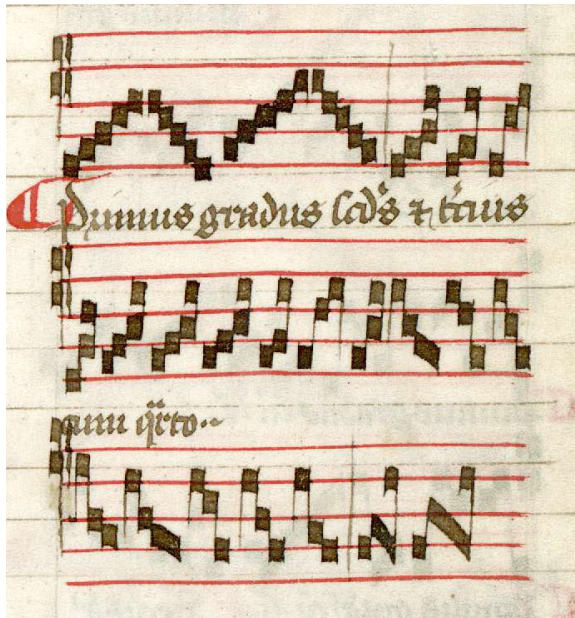 Primus gradus scd's & t'cius
cum q̈rto··